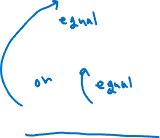 equal
or equal